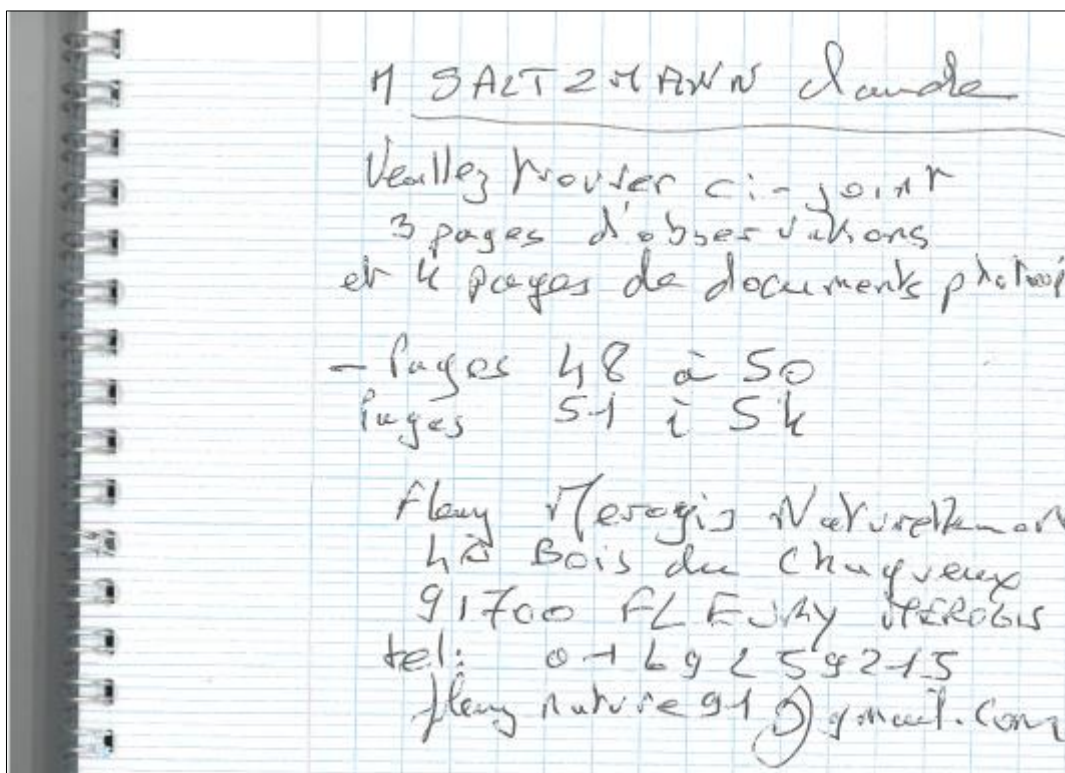 M SALTZMANN Claude
Veuillez trouver ci-joint
3 pages d'observations
et 4 pages de documents
- Pages 48 à 50
Pages 51 à 54
Fleury Merogis Naturellement
Bois du Chaqueux
91700 FLEURY MEROGIS
tel: 01 69 25 92 15
fleury nature 91 @ gmail.com